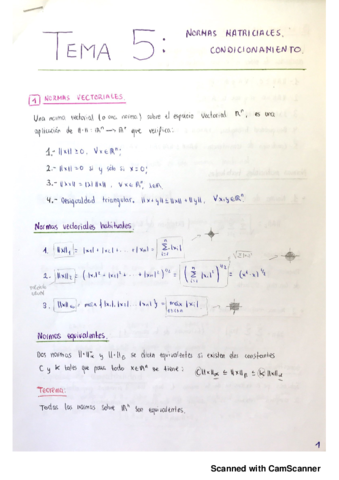 TEMA 5: NORMAS MATRICIALES.
CONDICIONAMIENTO.
1 NORMAS VECTORIALES.
Una norma vectorial (o norma) sobre el espacio vectorial ℝⁿ, es una
aplicación de ‖·‖: ℝⁿ → ℝ⁺ que verifica:
1.- ‖x‖ ≥ 0, ∀x∈ℝⁿ;
2.- ‖x‖ = 0 si y sólo si x = 0;
3.- ‖λx‖ = |λ| ‖x‖, ∀x∈ℝⁿ, λ∈ℝ
4.- Desigualdad triangular, ‖x+y‖ ≤ ‖x‖ + ‖y‖, ∀x,y∈ℝⁿ
Normas vectoriales habituales:
1. ‖x‖₁ = |x₁| + |x₂| + ... + |xₙ| = Σ |xᵢ|
2. ‖x‖₂ = (|x₁|² + |x₂|² + ... + |xₙ|²)^1/2 = (Σ |xᵢ|²)^1/2 = (xᵗ·x)^1/2
3. ‖x‖∞ = max {|x₁|, |x₂|, ... |xₙ|} = max |xᵢ|
Normas equivalentes.
Dos normas ‖·‖α y ‖·‖β se dicen equivalentes si existen dos constantes
C y K tales que para todo x∈ℝⁿ se tiene: C‖x‖α ≤ ‖x‖β ≤ K‖x‖α
Teorema:
Todas las normas sobre ℝⁿ son equivalentes.
1
Scanned with CamScanner